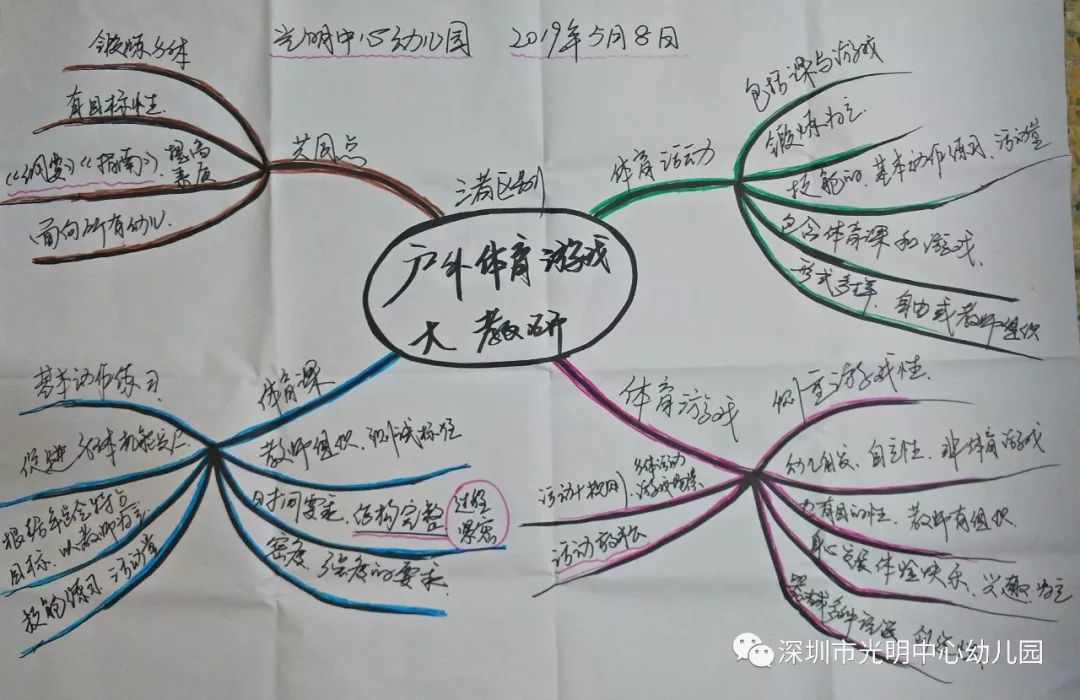 光明中心幼儿园 2019年5月8日
户外体育游戏
大教研
三者区别
共同点
锻炼身体
有目标性
《纲要》《指南》、提高
素质
面向所有幼儿
体育活动
包括课与游戏
锻炼为主
技能的、基本动作练习、活动量
包含体育课和游戏
形式多样、自由或教师组织
体育课
基本动作练习
促进身体机能发展
根据年龄特点
目标、以教师为主
技能练习、活动量
教师组织、
时间要求、结构完整
过程
密度、强度的要求
体育游戏
侧重游戏性
幼儿自发、自主性、非体育游戏
有目的性、教师有组织
身心发展体验快乐、兴趣为主
器械多种
活动
活动
游戏
深圳市光明中心幼儿园